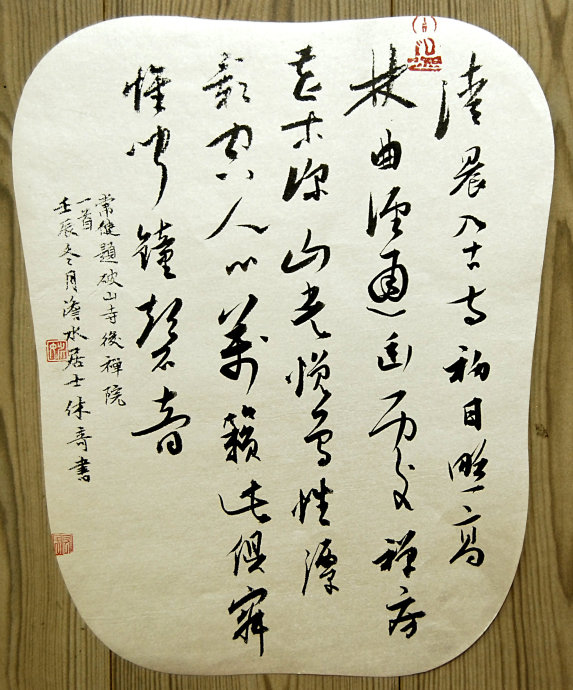 清晨入古寺初日照高
林曲徑通幽處禪房
花木深山光悅鳥性潭
影空人心萬籟此俱寂
惟聞鐘磬音
常健題破山寺後禪院
一首
壬辰冬月澹水居士休奇書